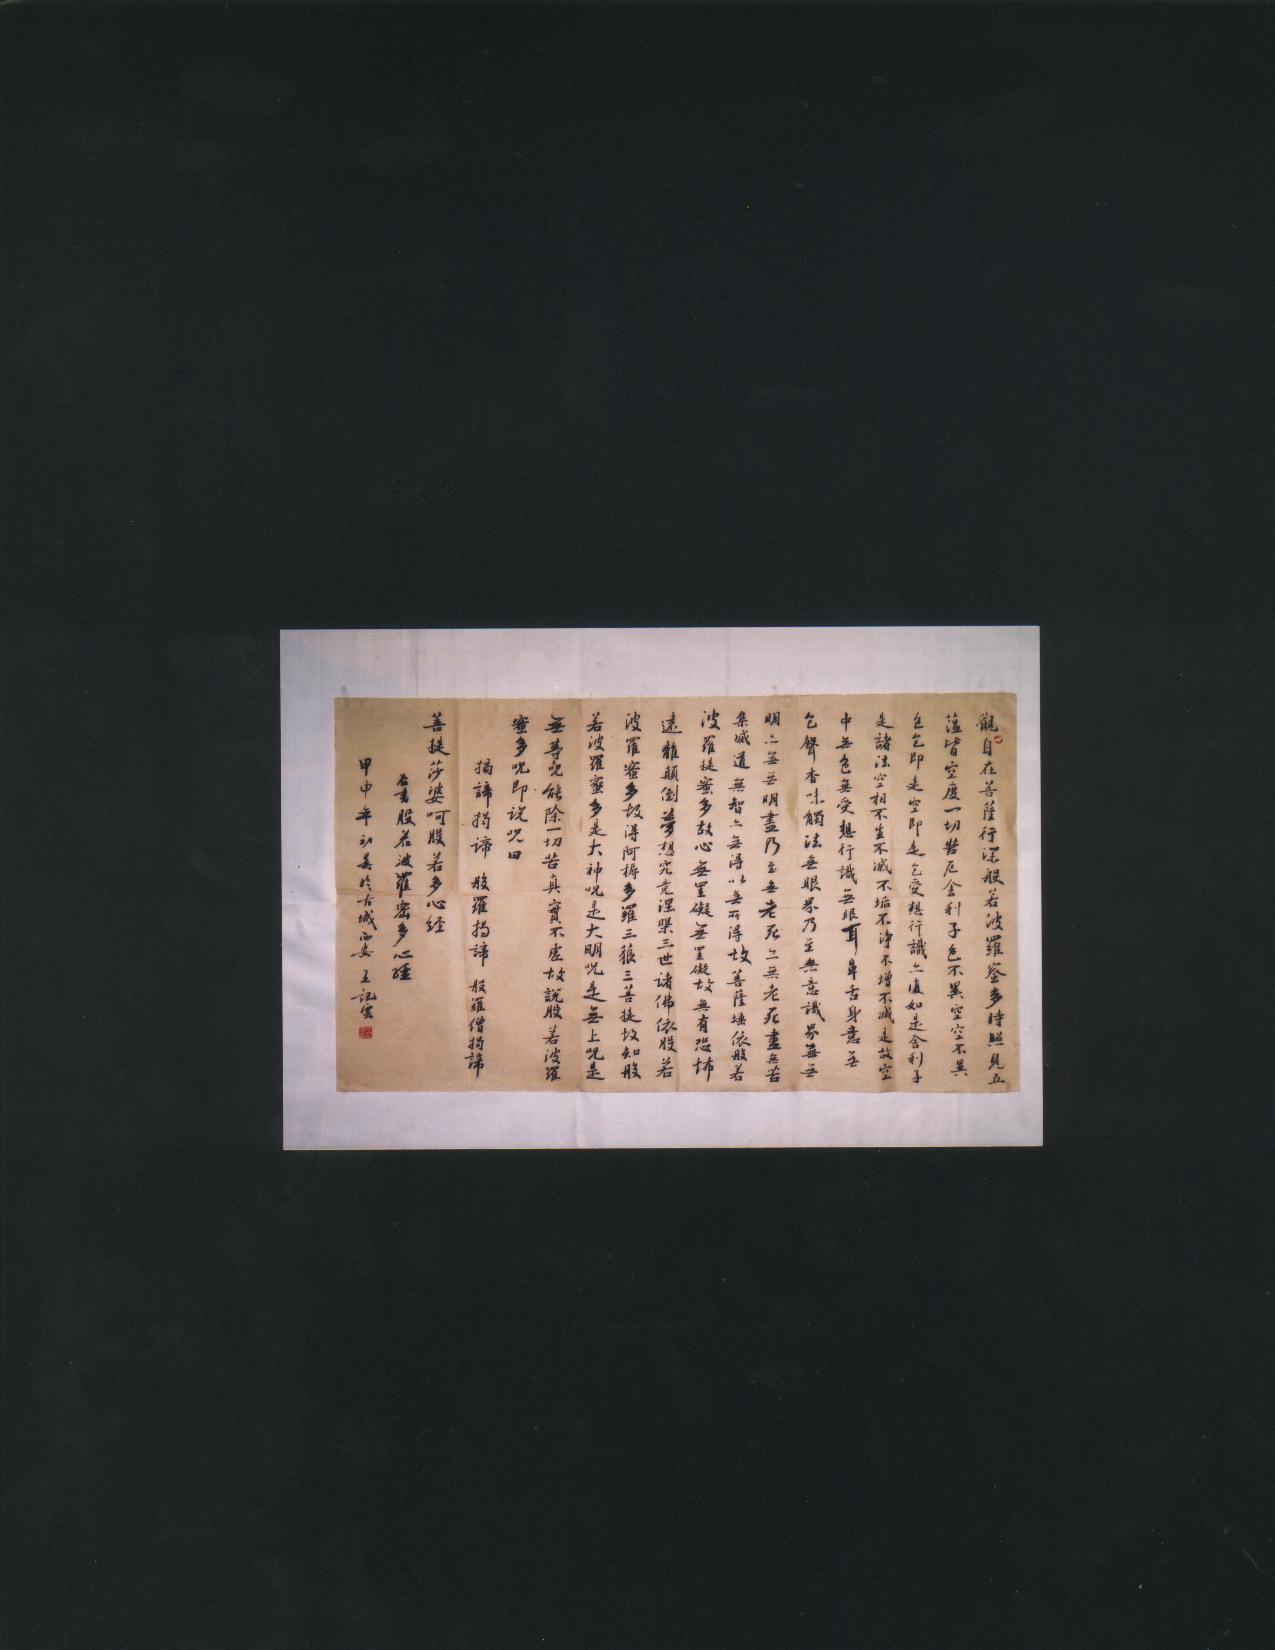 觀自在菩薩行深般若波羅蜜多時照見五
蕴皆空度一切苦厄舍利子色不異空空不異
色色即是空空即是色受想行識亦復如是舍利子
是諸法空相不生不滅不垢不淨不增不減是故空
中無色無受想行識無眼耳鼻舌身意無
色聲香味觸法無眼界乃至無意識界無無
明亦無無明盡乃至無老死亦無老死盡無苦
集滅道無智亦無得以無所得故菩薩埵依般若
波羅提蜜多故心無罣礙無罣礙故無有恐怖
遠離顛倒夢想究竟涅槃三世諸佛依般若
波羅蜜多故得阿耨多羅三藐三菩提故知般
若波羅蜜多是大神咒是大明咒是無上咒是
無等咒能除一切苦真實不虛故說般若波羅
蜜多咒即説咒曰
揭諦揭諦 般羅揭諦 般羅僧揭諦
菩提莎婆呵般若多心经
右書般若波羅密多心經
甲申年初春於古城西安 王記